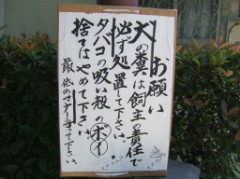 お願い
犬の糞は飼主責任で
必ず処置して下さい。
タバコの吸い殻のポイ
捨てはやめて下さい
最低のマナーです。